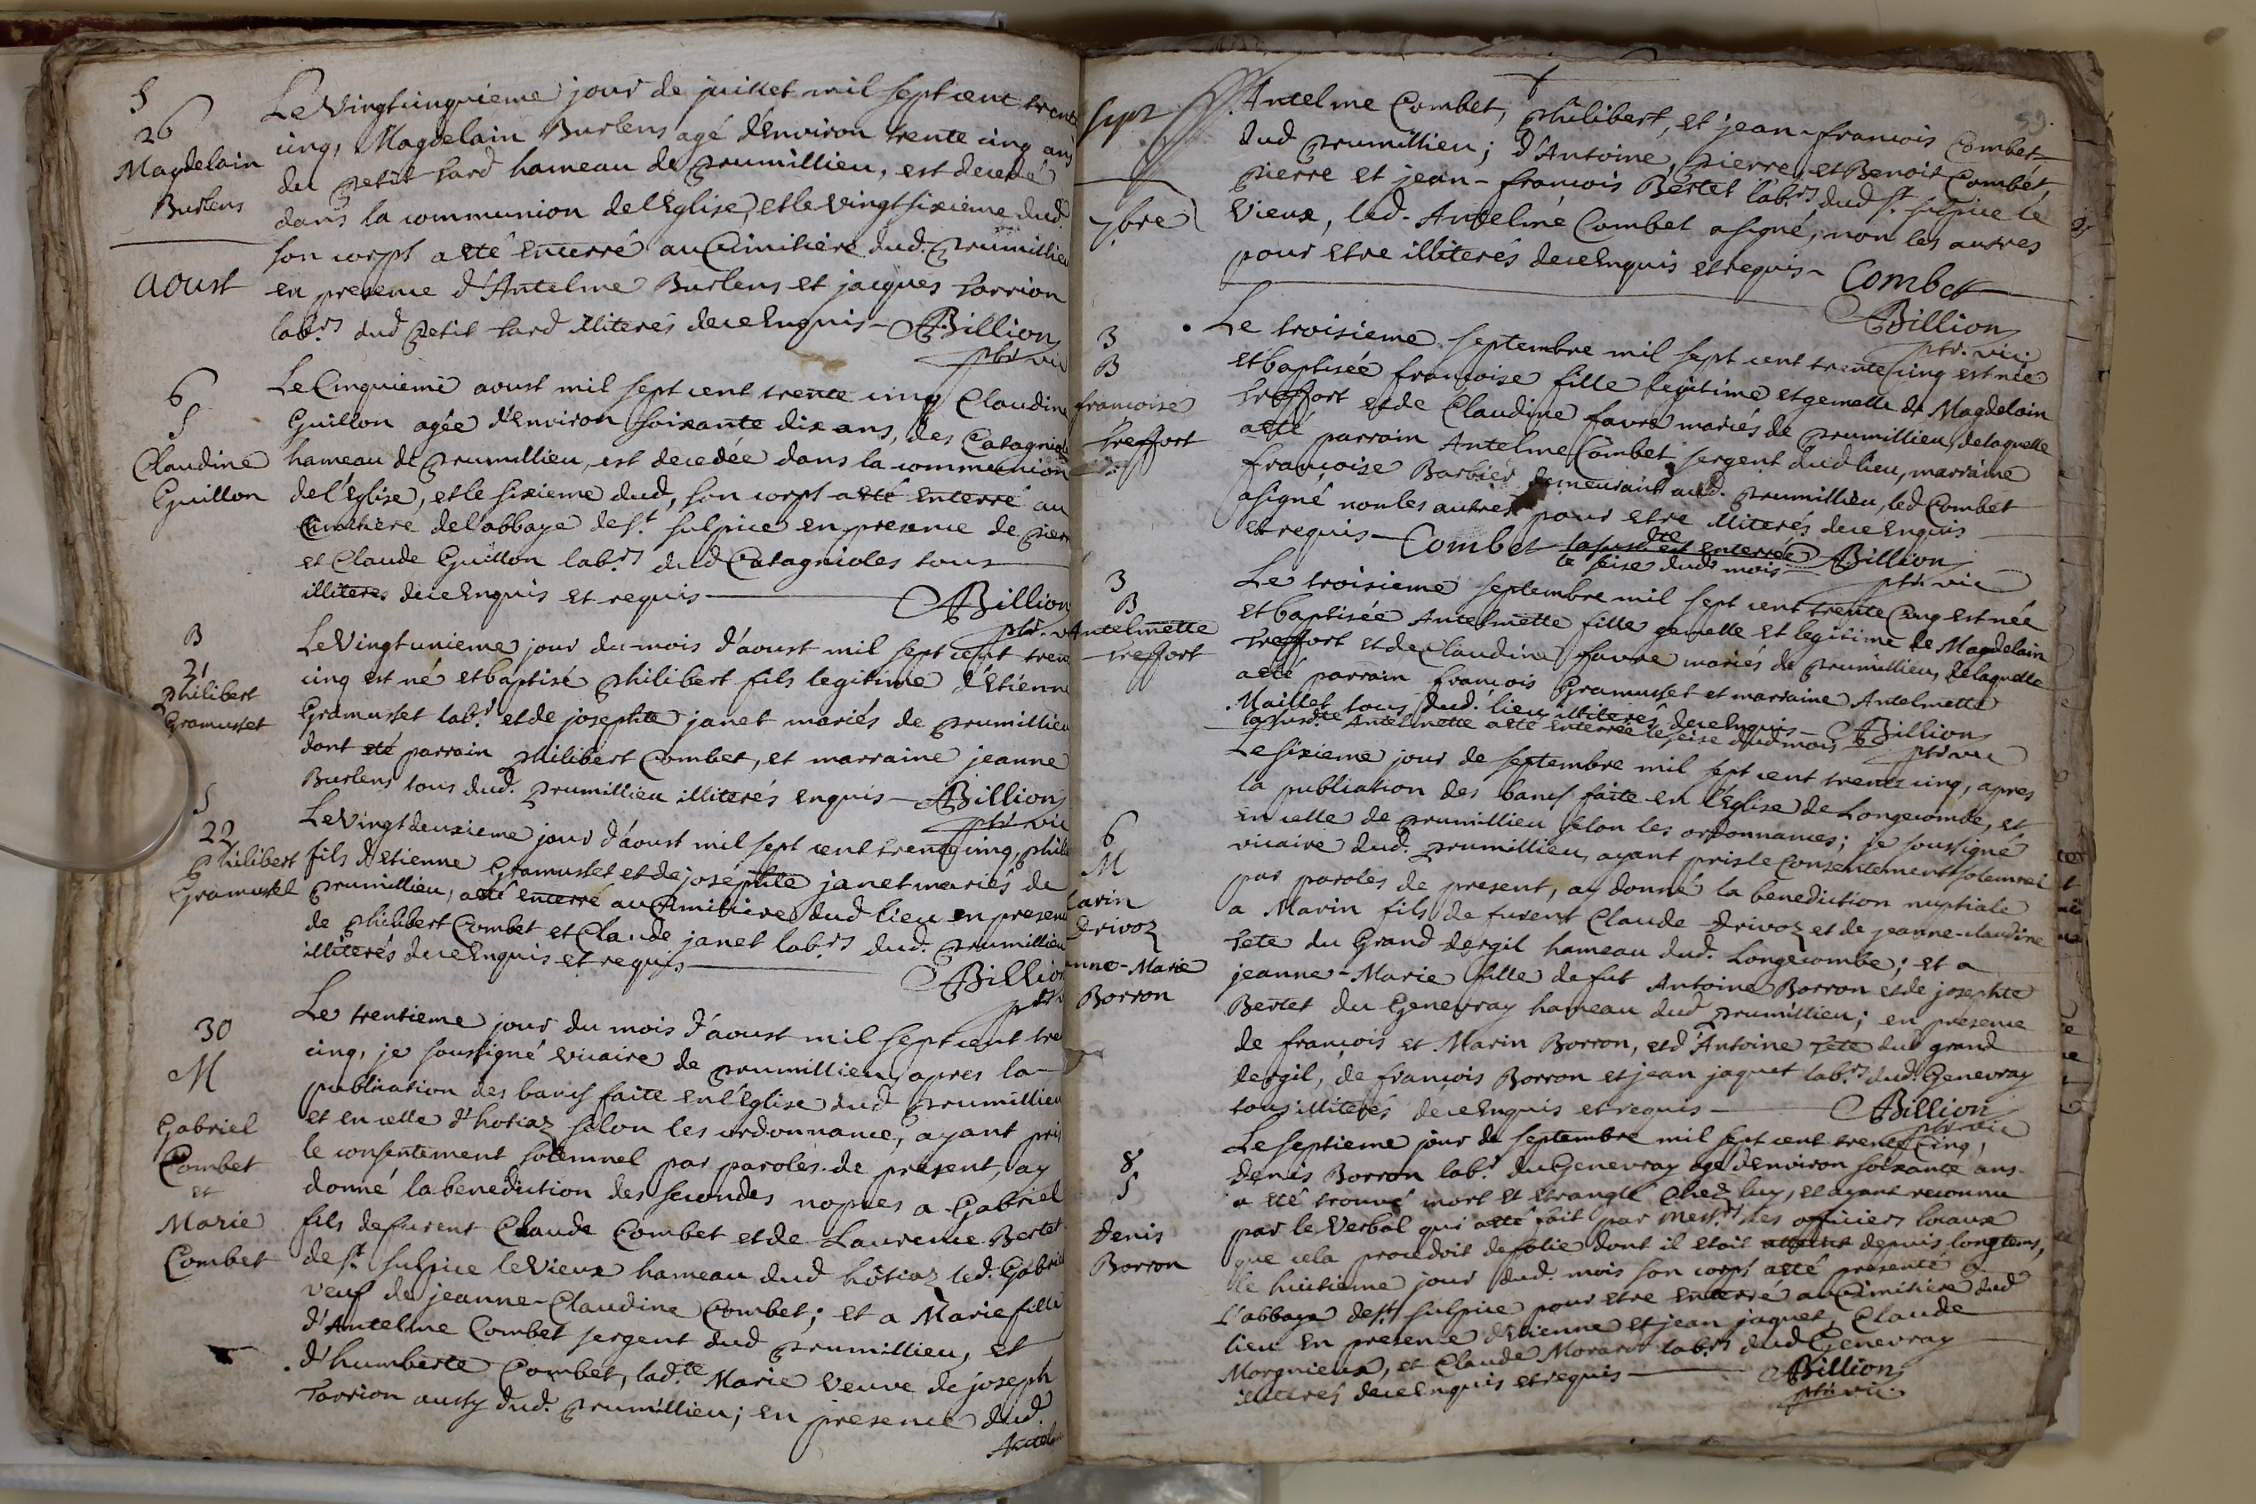 S
26
Magdelain
Burlens
Le vingtcinquieme jour de juillet mil sept cent trente
cinq, Magdelain Burlens agé d'Environ trente cinq ans
du petit hameau de prumillieu, est decedé
dans la communion de l'Eglise, et le vingt sixieme dud.
son corps a eté enterré au Cimitiere dud. prumillieu
en presence d'Antelme Burlens et jacques
lab.rs dud petit illiterés de ce Enquis - Billion
ptr. vic
aoust
6
S
Claudine
Guillon
Le Cinquieme aoust mil sept cent trente cinq Claudine
Guillon agée d'Environ soixante dix ans, des Catagnioles
hameau de prumillieu, est decedée dans la communion
de l'Eglise, et le sixieme dud, son corps a eté enterré au
Cimitiere de l'abbaye de st. sulpice en presence de pierre
et Claude Guillon lab.rs dud Catagnioles tous
illiteres de ce Enquis et requis - Billion
ptr. v
B
21
philibert
Gramusset
Le vingtunieme jour du mois d'aoust mil sept cent trente
cinq est né et baptisé philibert fils legitime d'Etienne
Gramusset lab.r et de josephte janet mariés de prumillieu
dont eté parrain philibert Combet, et marraine jeanne
Burlens tous dud. prumillieu illiterés enquis - Billion
ptr. vic
S
22
philibert
Gramusset
Le Vingtdeuxieme jour d'aoust mil sept cent trente cinq, phili
fils d'Etienne Gramusset et de josephte janet mariés de
prumillieu, a eté enterré au Cimitiere dud lieu en presence
de philibert Combet et Claude janet lab.rs dud. prumillieu
illiterés de ce Enquis et requis - Billion
ptr.
30
M
Gabriel
Combet
et
Marie
Combet
Le trentieme jour du mois d'aoust mil sept cent tre
cinq, je soussigné vicaire de prumillieu, apres la
publication des bancs faite en l'Eglise dud prumillieu
et en celle d'hotiaz selon les ordonnance, ayant pris
le consentement solemnel par paroles de present, ay
donné la benediction des secondes nopces a Gabriel
fils de furent Claude Combet et de Laurence Bertet
de st. sulpice le Vieux hameau dud hôtiaz led. Gabriel
veuf de jeanne-Claudine Combet; et a Marie fille
d'Antelme Combet sergent dud prumillieu, et
d'humberte Combet, lad.te Marie veuve de joseph
Torrion aussy dud. prumillieu; en presence dud.
Antel
sept
7bre
Antelme Combet, philibert, et jean-francois Combet
dud prumillieu; d'Antoine, pierre, et Benoit Combet
pierre et jean-francois Bertet lab.rs dud st. sulpice le
vieux, led. Antelme Combet a signé, non les autres
pour etre illiterés de ce Enquis et requis - Combet
Billion
ptr. vic.
3
B
francoise
treffort
Le troisieme septembre mil sept cent trente cinq est née
et baptisée francoise fille legitime et gemelle de Magdelain
treffort et de Claudine favre mariés de prumillieu, de laquelle
a eté parrain Antelme Combet sergent dud lieu, marraine
françoise Barbier demeurant aud. prumillieu, led Combet
a signé non les autres pour etre illiterés de ce Enquis
et requis - Combet la susd.te est enterrée Billion
le seise dud mois ptr. vic
3
B
Antelmette
treffort
Le troisieme septembre mil sept cent trente cinq est née
et baptisée Antelmette fille gemelle et legitime de Magdelain
treffort et de Claudine favre mariés de prumillieu, de laquelle
a eté parrain francois Gramusset et marraine Antelmette
Maillet tous dud. lieu illiterés de ce Enquis - Billion
la susd.te Antelmette a eté enterrée le seise dud mois ptr vic
6
M
arin
Drivoz
nne-Marie
Borron
Le sixieme jour de septembre mil sept cent trente cinq, apres
la publication des bancs faite en l'Eglise de Longecombe, et
en celle de prumillieu selon les ordonnances; je soussigné
vicaire dud. prumillieu, ayant pris le Consentement solemnel
par paroles de present, ay donné la benediction nuptiale
a Marin fils de furent Claude Drivoz et de jeanne-claudine
Tete du Grand dergil hameau dud. Longecombe; et a
jeanne-Marie fille de fut Antoine Borron et de josephte
Bertet du Genevray hameau dud prumillieu; en presence
de françois et Marin Borron, et d'Antoine Tete du grand
dergil, de francois Borron et jean jaquet lab.rs dud. Genevray
tous illiterés de ce Enquis et requis - Billion
ptr vic
8
S
Denis
Borron
Le septieme jour de septembre mil sept cent trente cinq,
Denis Borron lab.r du Genevray agé d'environ soixante ans
a eté trouvé mort et etranglé Chez luy, et ayant reconnu
par le Verbal qui a eté fait par mess.rs les officiers locaux
que cela procedoit de folie dont il etoit atteint depuis longtems,
le huitieme jour dud. mois son corps a eté presenté a
l'abbaye de st. sulpice pour etre enterré au Cimitiere dud
lieu En presence d'Etienne et jean jaquet, Claude
Morgnieux, et Claude Morard lab.rs dud Genevray
illiterés de ce Enquis et requis - Billion
ptr. vic.